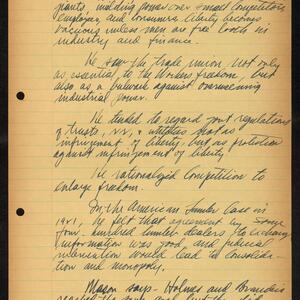 giants, wielding power over small competitors
employees and consumers liberty becomes
vacuous unless men are free both in
industry and finance.
He saw the trade union, not only
as essential to the workers freedom, but
also as a bulwark against overweening
industrial power.
He tended to regard govt regulations
of trusts, utilities not as
infringement of liberty, but as protection
against infringement of liberty.
He rationalized competition to
enlarge freedom.
In the American Lumber Case in
1921, he felt that agreement by some
four hundred lumber dealers to exchange
information was good and judicial
would lead to consolida-
tion and monopoly.
Mason says - Holmes and Brandeis
the same